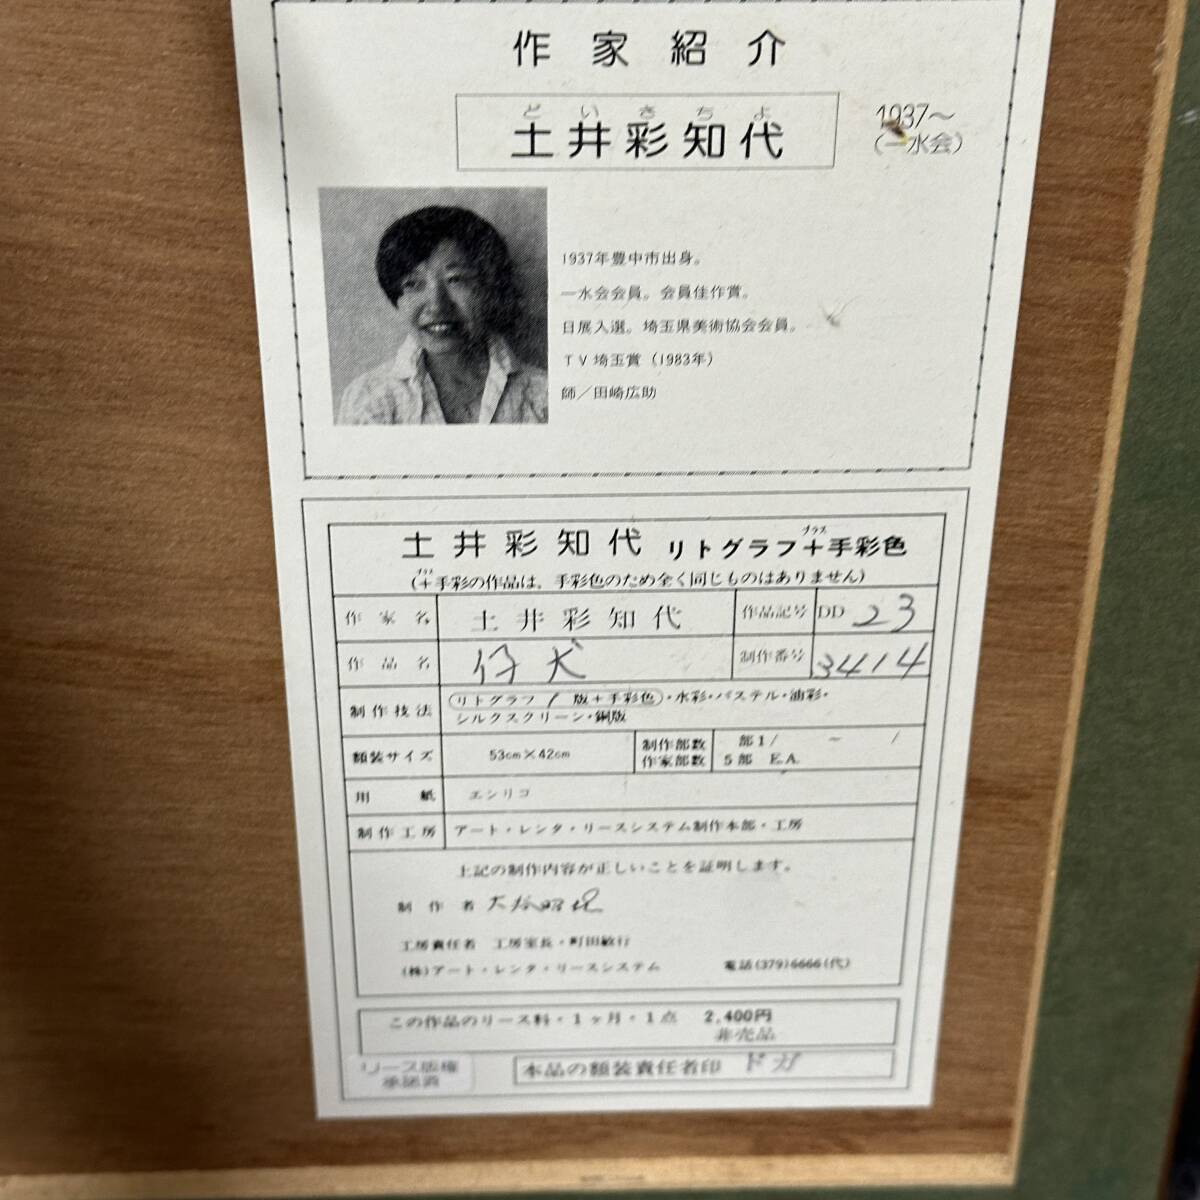 作家紹介
どいさちよ
土井彩知代
1937～
(一水会)
1937年豊中市出身。
一水会会員。会員佳作賞。
日展入選。埼玉県美術協会会員。
TV埼玉賞(1983年)
師／田崎広助
プラス
土井彩知代 リトグラフ＋手彩色
プラス
(＋手彩の作品は、手彩色のため全く同じものはありません)
作家名 土井彩知代 作品記号 DD 23
作品名 仔犬 制作番号 3414
制作技法 リトグラフ 1 版＋手彩色・水彩・パステル・油彩・
シルクスクリーン・銅版
額装サイズ 53cm×42cm 制作部数 部1/ ～ /
作家部数 5部 E.A.
用紙 エンリコ
制作工房 アート・レンタ・リースシステム制作本部・工房
上記の制作内容が正しいことを証明します。
制作者
工房責任者 工房室長・町田敏行
(株)アート・レンタ・リースシステム 電話(379)6666(代)
この作品のリース料・1ヶ月・1点 2,400円
非売品
リース版権
承諾済
本品の額装責任者印 ドガ